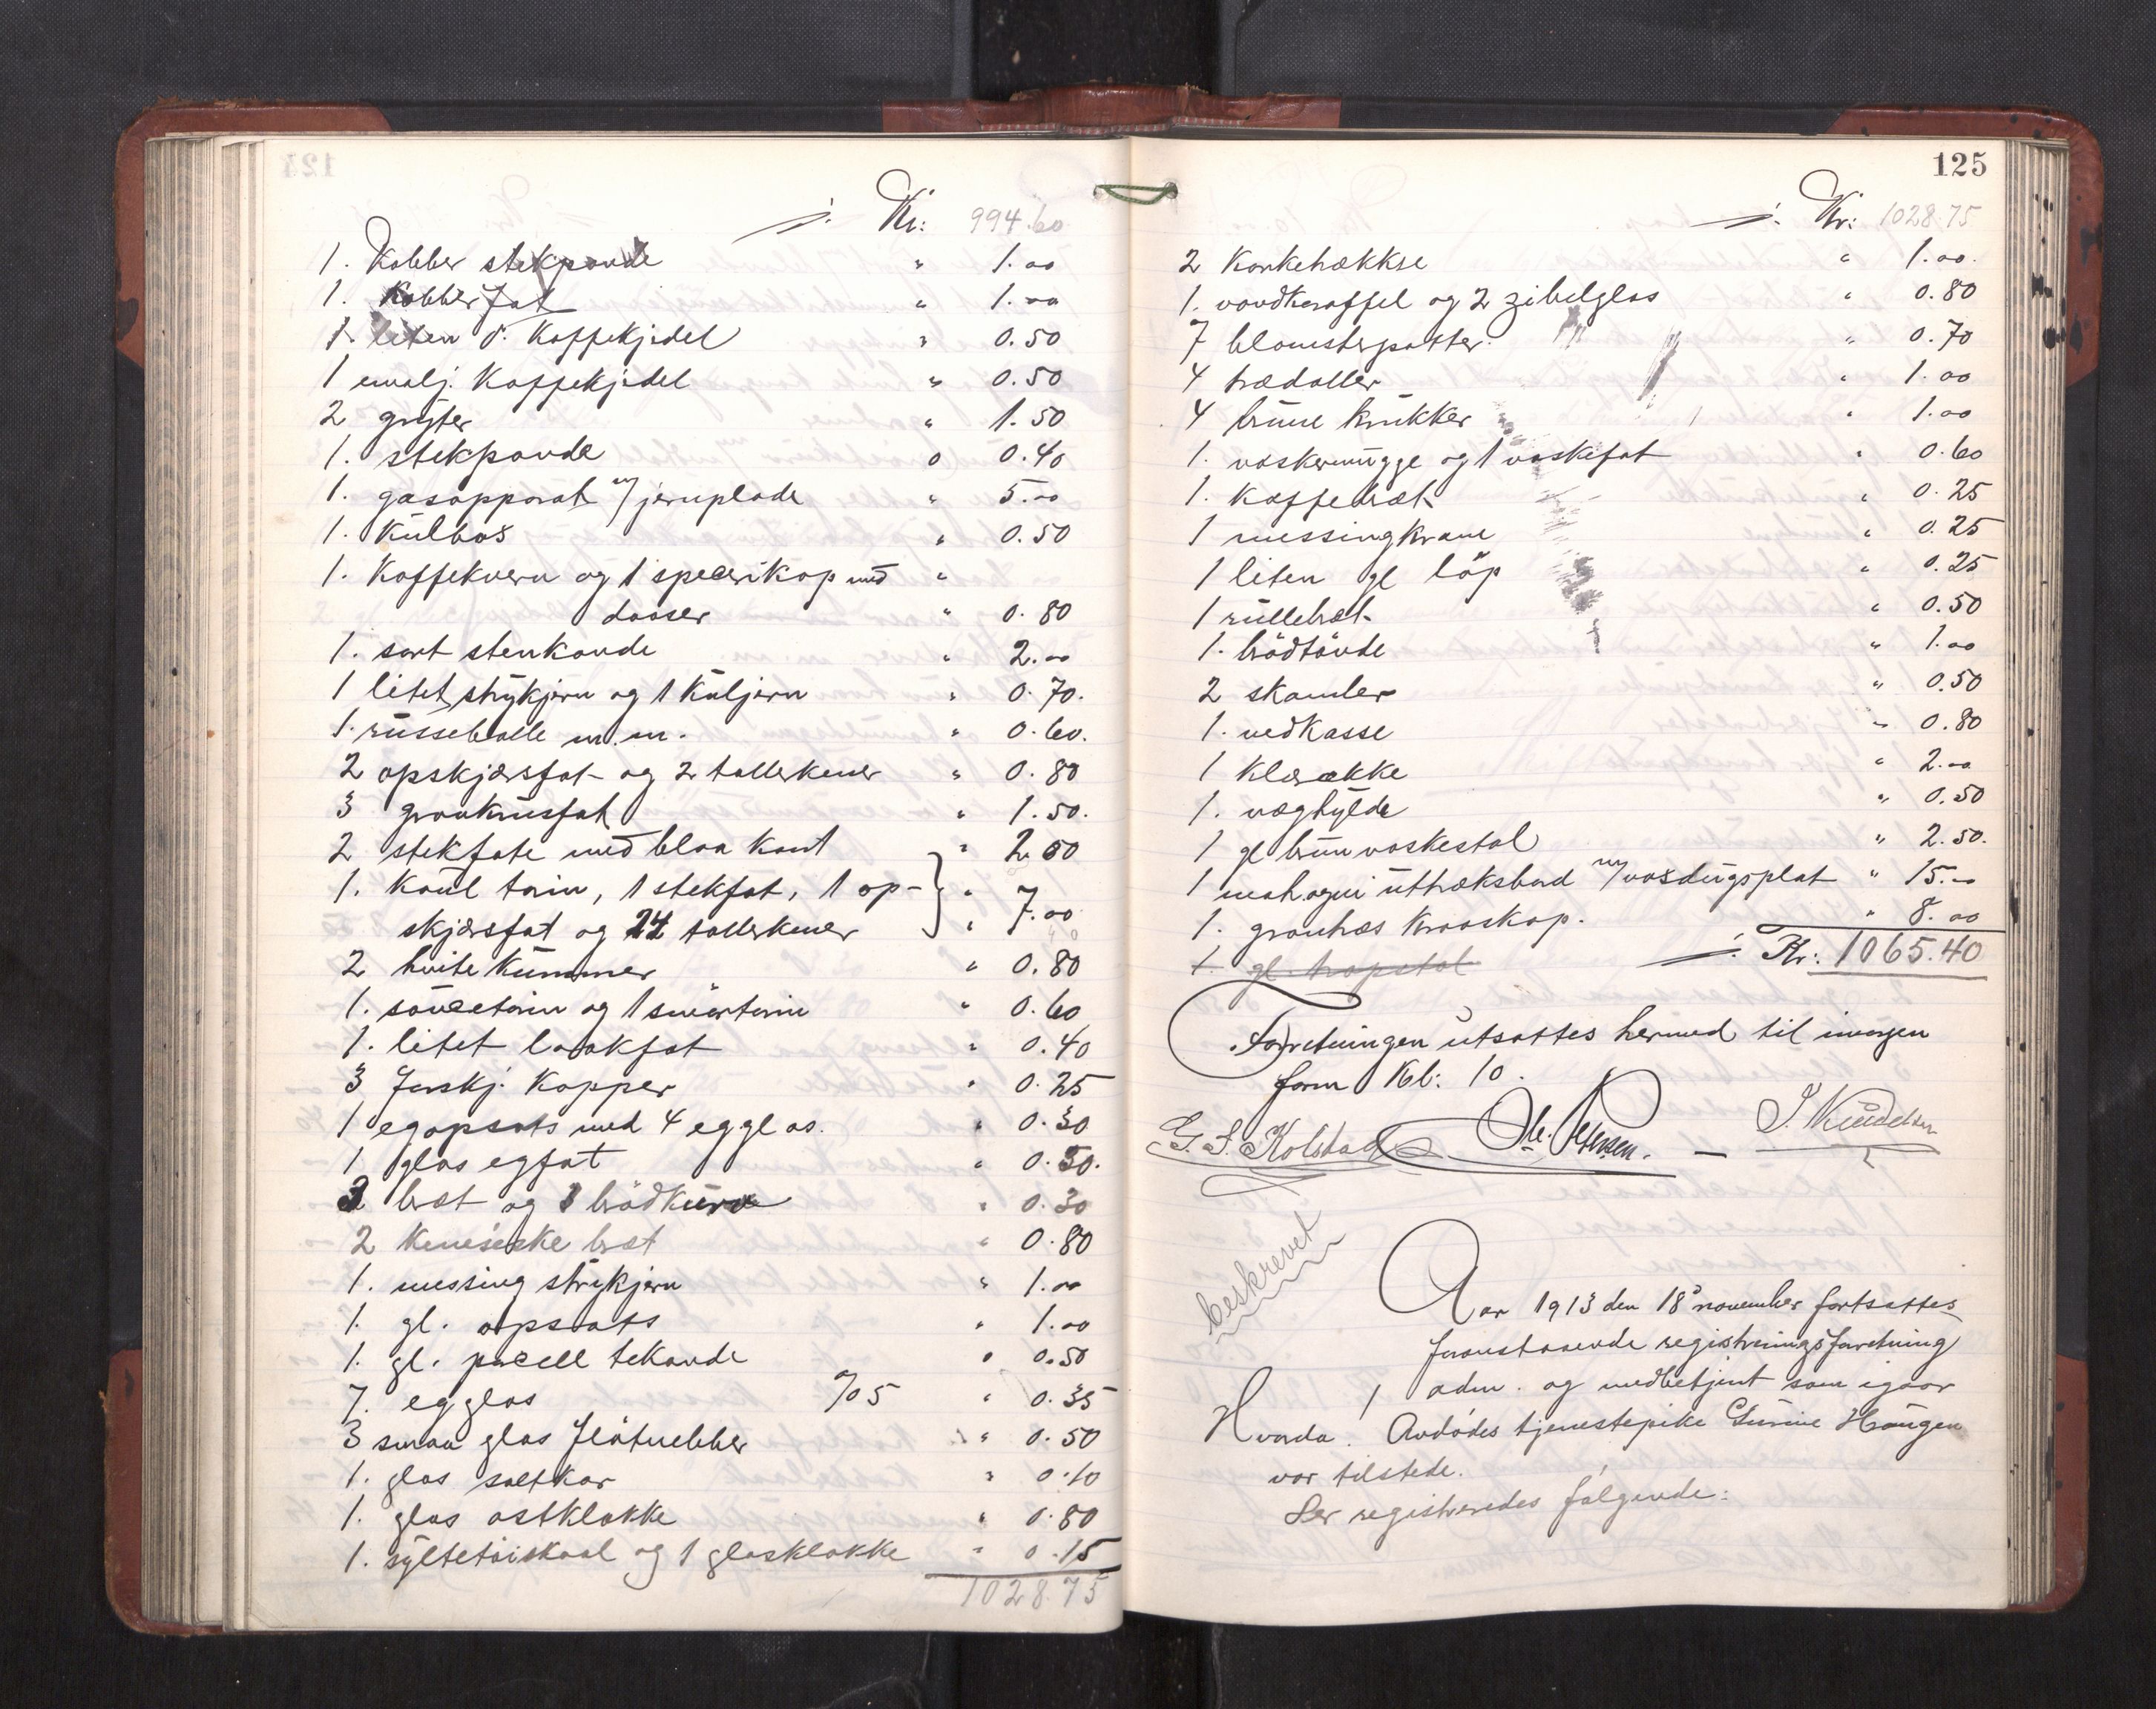 ÷ Kr: 994.60
1. Kobber stekpande " 1.00
1. Kobberfat " 1.00
1 liten d: Kaffekjedel " 0.50
1 emalj. Kaffekjedel " 0.50
2 gryter " 1.50
1. stekpande " 0.40
1. gasapparat m/ jernplade " 5.00
1. Kulbos " 0.50
1. Kaffekvern og 1 speserikap med "
daaser " 0.80
1. sort stenkande " 2.00
1 litet strykjern og 1 Kuljern " 0.70.
1. russebolle m.m. " 0.60.
2 opskjærsfat og 2 tallerkener " 0.80
3 graukrusfat " 1.50.
2 stekfate med blaa kant " 2.00
1. Kaal terin, 1 stekfat, 1 op- "
skjærsfat og 24 tallerkener " 7.00
2 hvite Kummer " 0.80
1. sauceterin og 1 smørterin " 0.60
1. litet laakfat " 0.40
3 forskj. Kopper " 0.25
1 egopsats med 4 egglas. " 0.30
1 glas egfat " 0.50.
2 bræt og 3 brödkurve " 0.30
2 Kinesiske bræt " 0.80
1. messing strykjern " 1.00
1. gl. opsats " 1.00
1. gl. porcell tekande " 0.50
7. egglas %05 " 0.35
3 smaa glas flötnebber " 0.50
1. glas saltkar " 0.10
1. glas ostklokke " 0.80
1. syltetöiskaal og 1 glasklokke " 0.15
1028.75
125
÷ Kr: 1028.75
2 Korketrækkse " 1.00.
1. vandkaraffel og 2 zibelglas " 0.80
7 blomsterpotter. " 0.70
4 trædaller " 1.00
4 brune krukker " 1.00
1. vaskemugge og 1 vaskefat " 0.60
1. Kaffebræt " 0.25
1 messingkrane " 0.25
1 liten gl löp " 0.25
1 rullebræt " 0.50
1. brödtönde " 1.00
2 skamler " 0.50
1. vedkasse " 0.80
1 Klærække " 2.00
1. væghylde " 0.50
1 gl brun vaskestol " 2.50.
1 mahogni uttræksbord m/ voxdugsplat " 15.00
1. grantræs Kroaskap. " 8.00
1. gl. trapstol ÷ Kr: 1065.40
Forretningen utsattes hermed til imorgen
form Kl: 10.
G. F. Kolstad Chr. Petersen. — J. Knudsen
beskrevet
Aar 1913 den 18 november fortsattes
foranstaaende registreringsforretning
adm. og medbetjent som igaar
Hvorda! Avdödes tjenestepike Gurine Haugen
var tilstede.
Der registreredes fölgende: